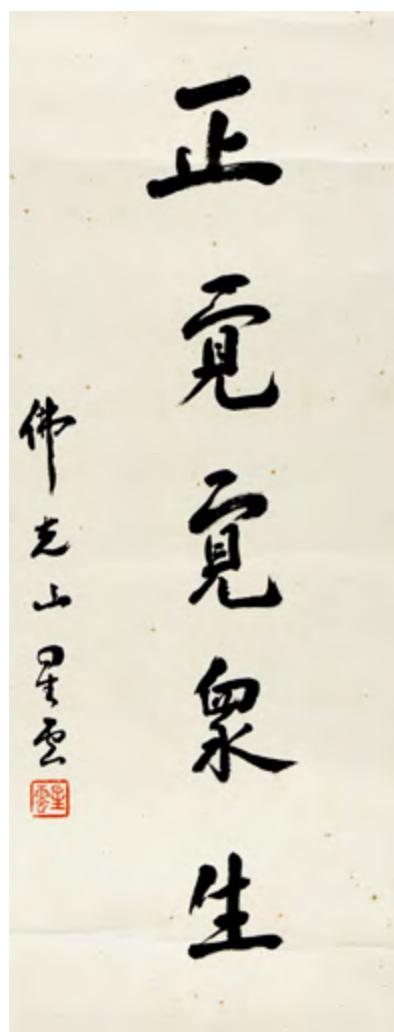 正覺覺衆生
佛光山星雲
星雲